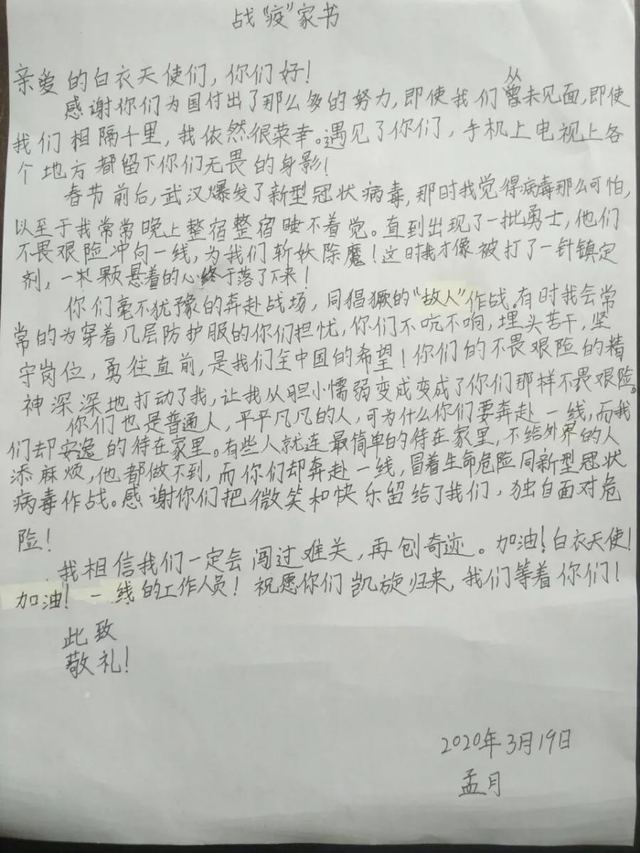 战“疫”家书
亲爱的白衣天使们，你们好！
感谢你们为国付出了那么多的努力，即使我们从曾未见面，即使
我们相隔千里，我依然很荣幸。遇见了你们，手机上电视上各
个地方都留下你们无畏的身影！
春节前后，武汉爆发了新型冠状病毒，那时我觉得病毒那么可怕，
以至于我常常晚上整宿整宿睡不着觉。直到出现了一批勇士，他们
不畏艰险冲向一线，为我们斩妖除魔！这时我才像被打了一针镇定
剂，一颗悬着的心终于落了下来！
你们毫不犹豫的奔赴战场，同倡撅的“敌人”作战。有时我会常
常的为穿着几层防护服的你们担忧，你们不吭不响，埋头苦干，坚
守岗位，勇往直前，是我们全中国的希望！你们的不畏艰险的精
神深深地打动了我，让我从胆小懦弱变成变成了你们那样不畏艰险。
你们也是普通人，平平凡凡的人，可为什么你们要奔赴一线，而我
们却安逸的待在家里。有些人就连最简单的待在家里，不给外界的人
添麻烦，他都做不到，而你们却奔赴一线，冒着生命危险同新型冠状
病毒作战。感谢你们把微笑和快乐留给了我们，独自面对危
险！
我相信我们一定会闯过难关，再创奇迹。加油！白衣天使！
加油！一线的工作人员！祝愿你们凯旋归来，我们等着你们！
此致
敬礼！
2020年3月19日
孟月